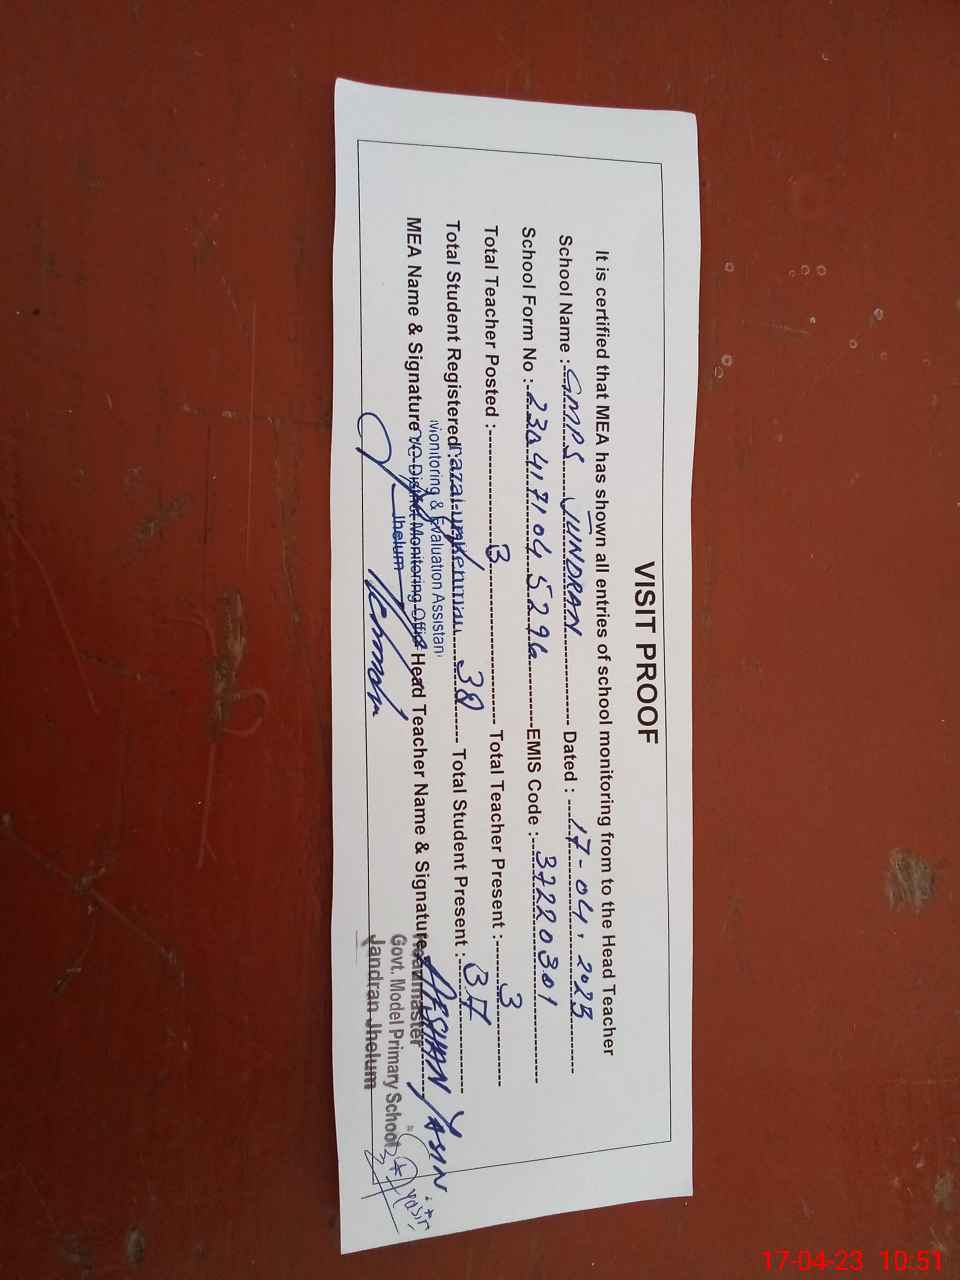 VISIT PROOF
It is certified that MEA has shown all entries of school monitoring from to the Head Teacher
School Name : GMPS JUNDRAN Dated : 17-04-2023
School Form No : 2304171045296 EMIS Code : 37220301
Total Teacher Posted : 3 Total Teacher Present : 3
Total Student Registered 38 Total Student Present : 37
Monitoring & Evaluation Assistan
MEA Name & Signature O District Monitoring Office Head Teacher Name & Signature YASIN
Jhelum
Headmaster
Govt. Model Primary School
Jandran Jhelum
17-04-23 10:51